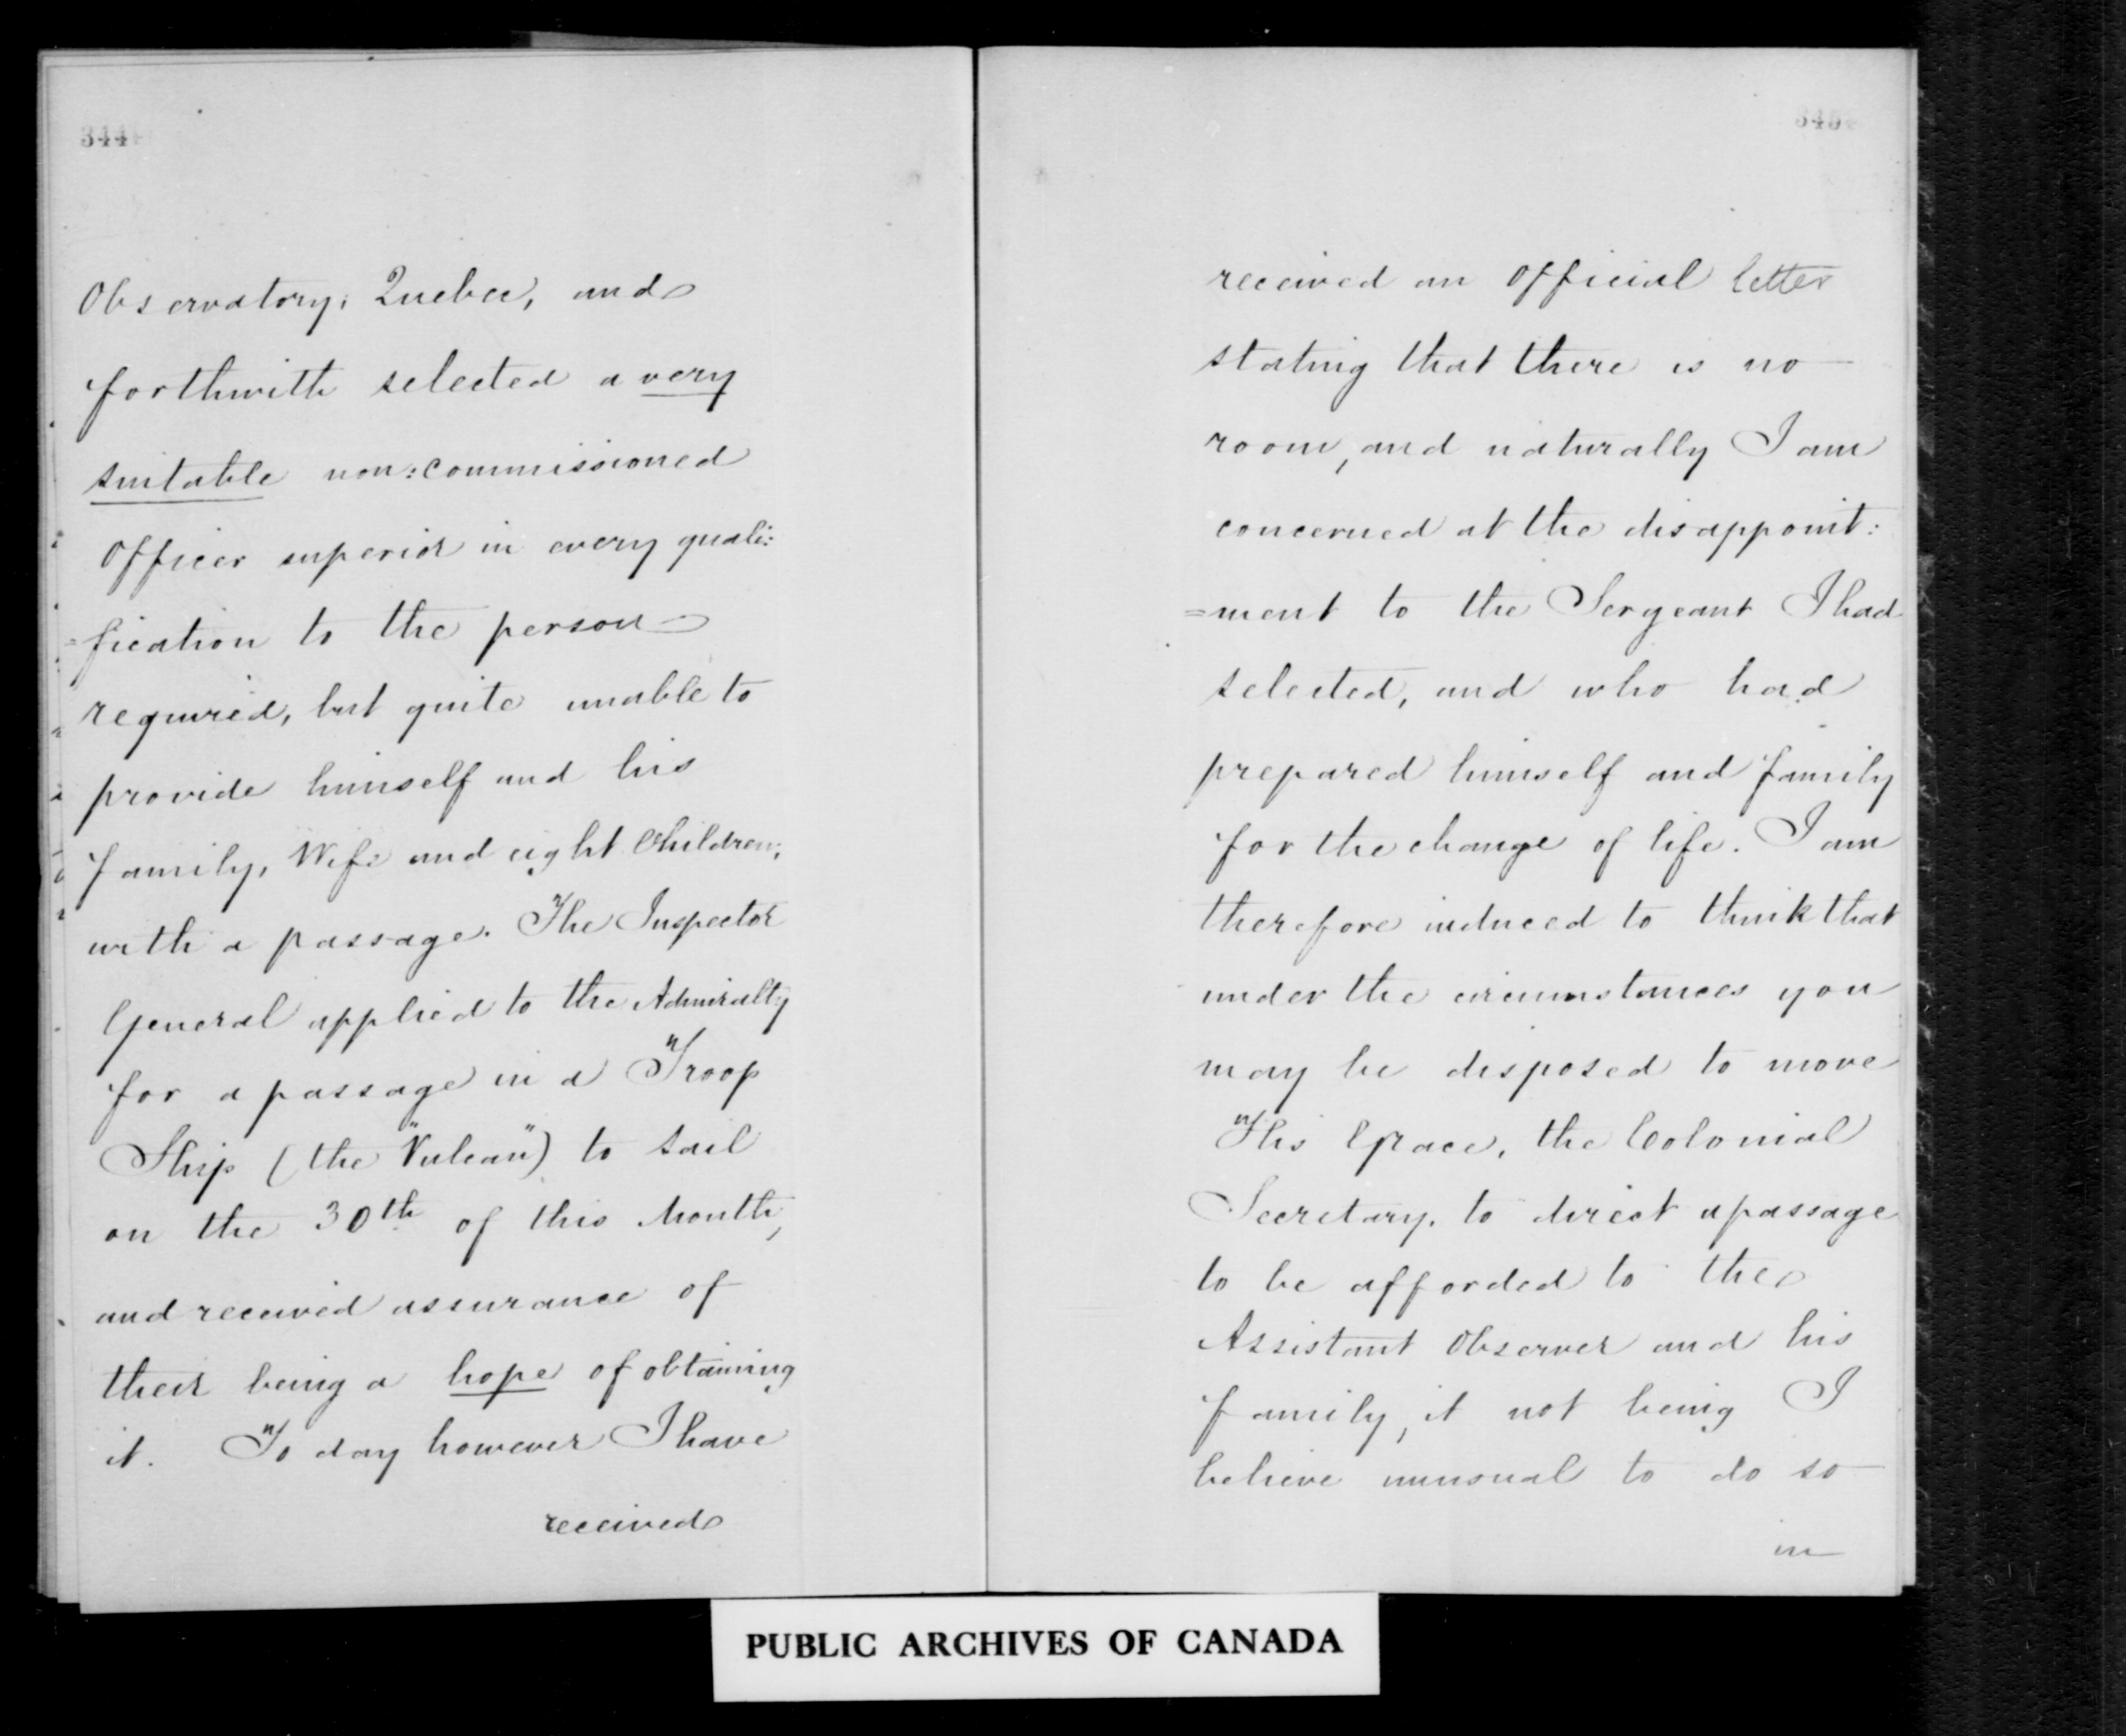 344
Observatory, Quebec, and
forthwith selected a very
suitable non:commissioned
Officer superior in every quali:
=fication to the person
required, but quite unable to
provide himself and his
family, Wife and eight Children,
with a passage. The Inspector
General applied to the Admiralty
for a passage in a Troop
Ship (the "Vulcan") to sail
on the 30th of this Month,
and received assurance of
their being a hope of obtaining
it. To day however I have
received
345
received an Official letter
stating that there is no
room, and naturally I am
concerned at the disappoint:
=ment to the Sergeant I had
selected, and who had
prepared himself and family
for the change of life. I am
therefore induced to think that
under the circumstances you
may be disposed to move
His Grace, the Colonial
Secretary, to direct a passage
to be afforded to the
Assistant Observer and his
family, it not being I
believe unusual to do so
in
PUBLIC ARCHIVES OF CANADA